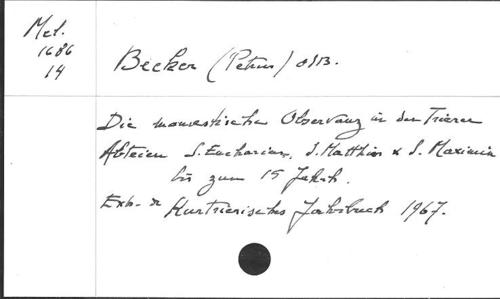 Mel.
1686
14
Becker (Petrus) OSB.
Die monastische Observanz in den Trierer
Abteien S. Eucharius, S. Matthias & S. Maximin
bis zum 15 Jahrh.
Extr. Kurtrierisches Jahrbuch 1967.